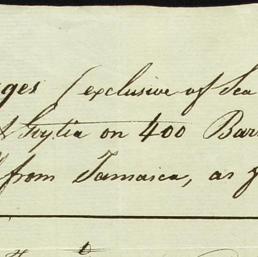 ges (exclusive of Sea
on 400 Bar
from Jamaica, as